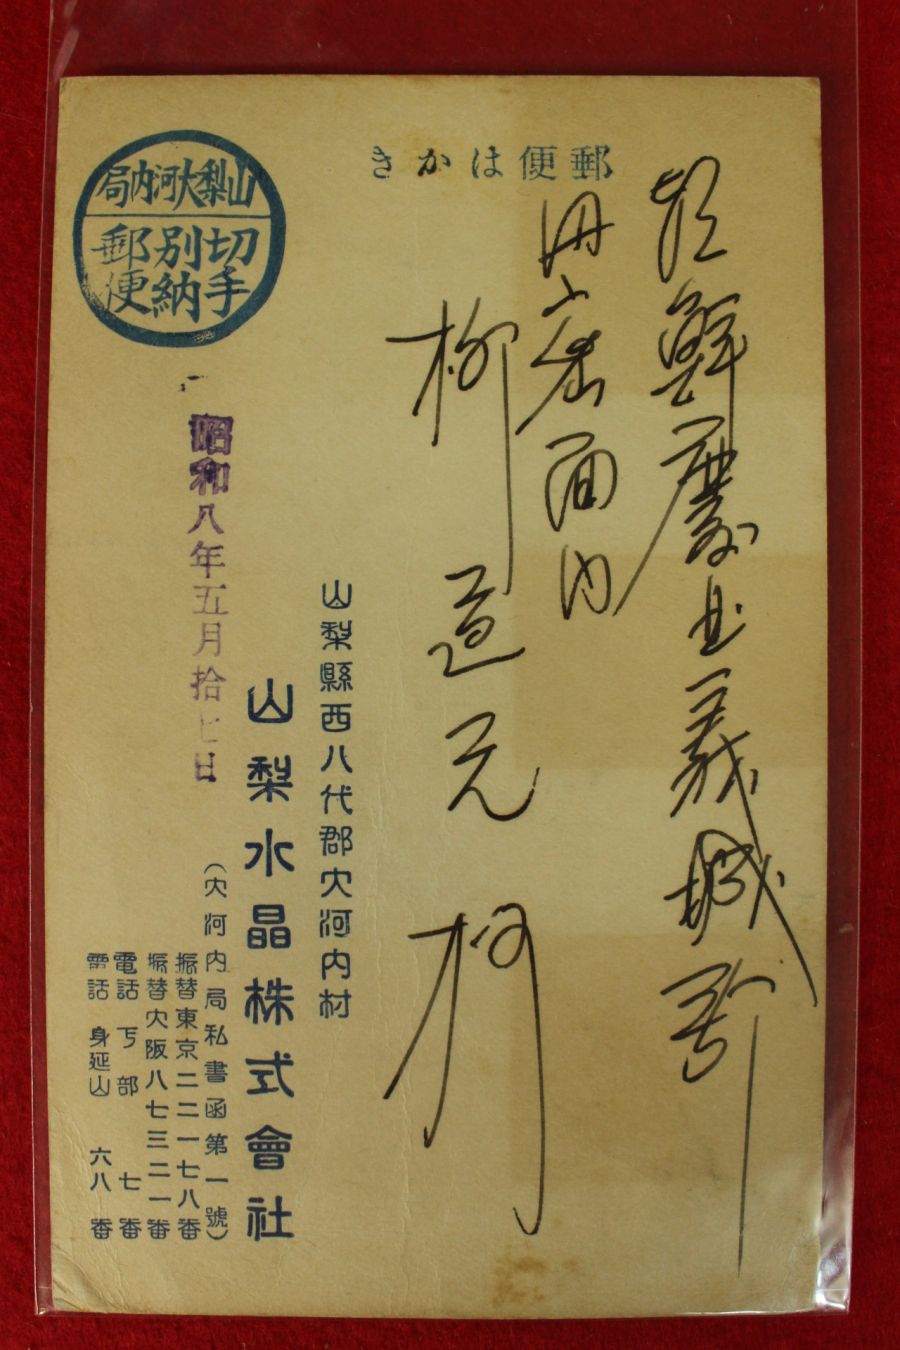 郵便はかき
朝鮮慶北義城郡
丹密面内
柳道元
山梨大河内局
切手
別納
郵便
昭和八年五月拾七日
山梨縣西八代郡大河内村
山梨水晶株式會社
（大河内局私書函第一號）
振替東京二二一七八番
振替大阪八七三二一番
電話 下部 七番
電話 身延山 六八番